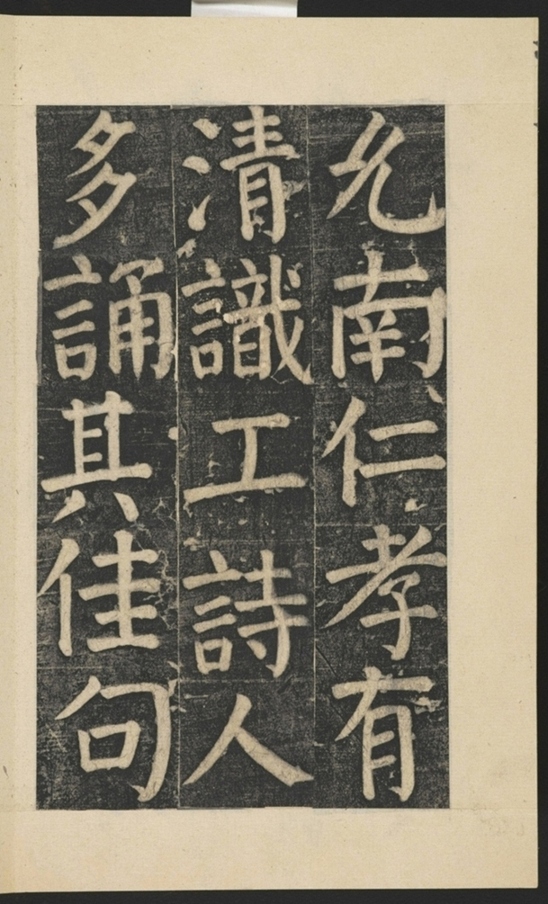 允南仁孝有
清識工詩人
多誦其佳句